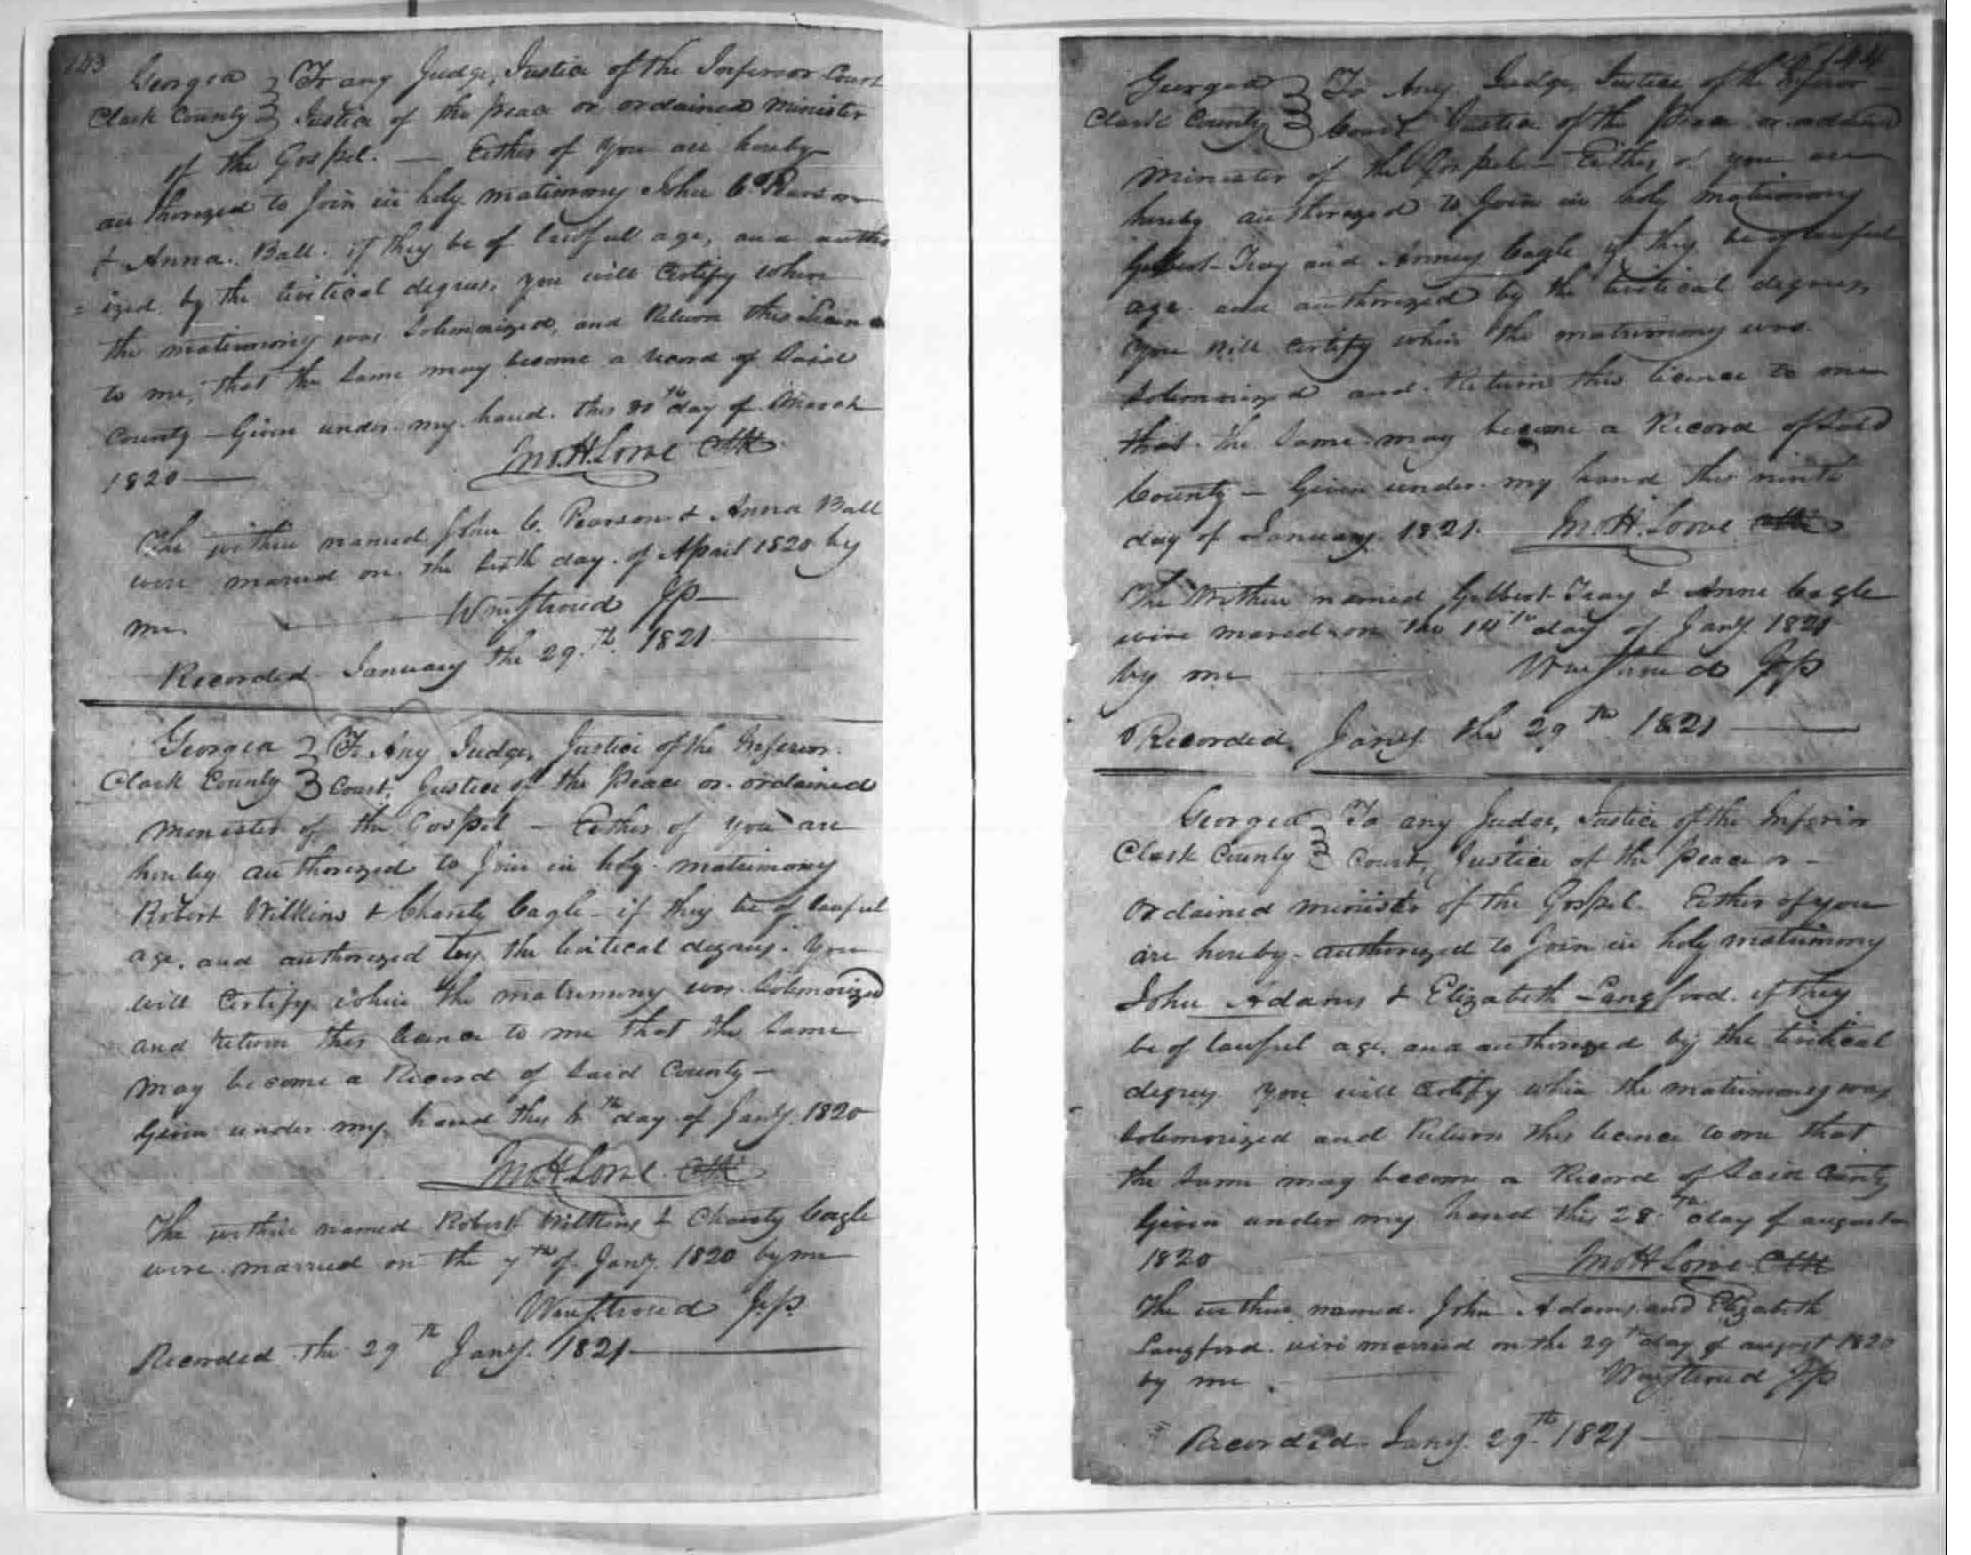 143
Georgea } To any Judge, Justice of the Inferior Court
Clark County } Justice of the peace or ordained minister
of the Gospel. — Either of you are hereby
authorized to Join in holy matimony John C. Pearson
& Anna Ball. if they be of lawfull age, and autho
= ized by the levitical degrees, you will Certify when
the matimony was Solemnized, and Return this Licence
to me, that the Same may become a record of Said
County — Given under my hand this 30th day of March
1820 — Jno. H. Lowe Clk
The within named John C. Pearson & Anna Ball
were maried on the Sixth day of April 1820 by
me Wm Stroud Jp —
Recorded January the 29th 1821
Georgea } To Any Judge, Justice of the Inferior
Clark County } Court, Justice of the peace or ordained
Minister of the Gospel — Either of you are
hereby authorized to Join in holy matrimony
Robert Wilkins & Charity Cagle if they be of lawful
age, and authorized by the levitical degrees. You
will Certify when the matrimony was Solemnized
and return this licence to me that the Same
may become a Record of Said County —
Given under my hand this 6th day of Jany. 1820
Jno H Lowe Clk
The within named Robert Wilkins & Charity Cagle
were married on the 7th of Jany. 1820 by me
Wm Stroud J.p.
Recorded the 29th Jany. 1821
144
Georgea } To Any Judge, Justice of the Inferior
Clark County } Court Justice of the Peace or ordained
Minister of the Gospel — Either of you are
hereby authorized to Join in holy matimony
Gilbert Tray and Anney Cagle if they be of lawful
age and authorized by the levitical degrees,
You will Certify when the matrimony was
Solemnized and Return this licence to me
that the Same may become a Record of Said
County — Given under my hand this ninth
day of January 1821. Jno. H. Lowe Clk
The Within named Gilbert Tray & Anne Cagle
were mared on the 14th day of Jany 1821
by me Wm Stroud Jp
Recorded Jany. the 29th 1821
Georgea } To any Judge, Justice of the Inferior
Clark County } Court, Justice of the peace or —
Ordained minister of the Gospel. Either of you
are hereby authorized to Join in holy matrimony
John Adams & Elizabeth Langford if they
be of lawful age, and authorized by the levitical
degrees You will Certify when the matrimony was
Solemnized and Return this licence to me that
the Same may become a Record of Said County
Given under my hand this 28th day of august
1820 Jno H Lowe Clk
The within named John Adams and Elizabeth
Langford were married on the 29th day of august 1820
by me. Wm Stroud Jp
Recorded Jany. 29th 1821